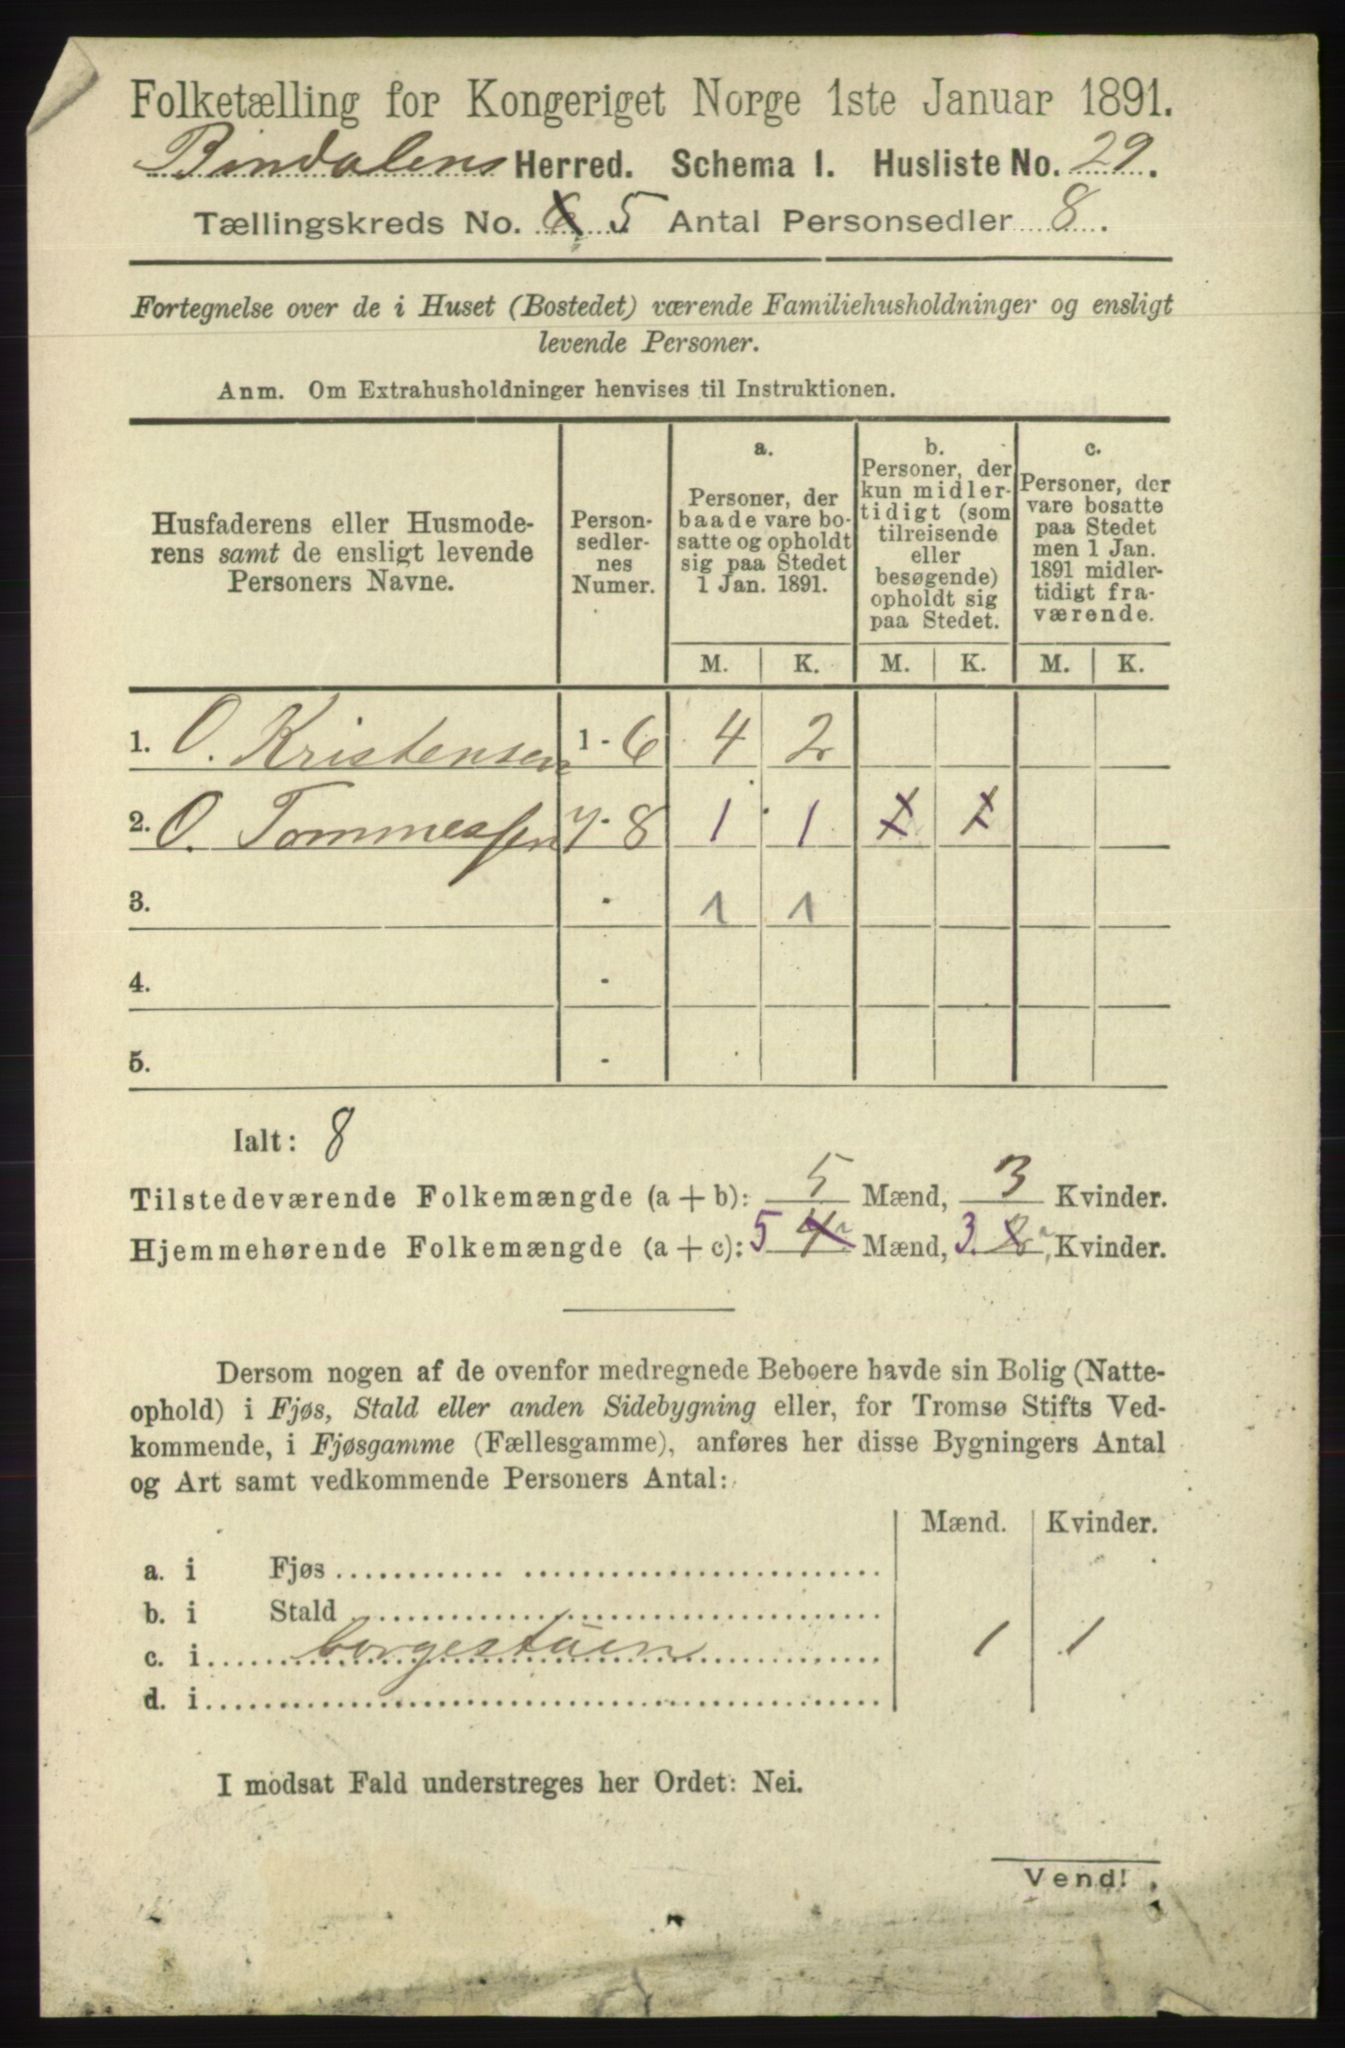 Folketælling for Kongeriget Norge 1ste Januar 1891.
Bindalens Herred. Schema I. Husliste No. 29.
Tællingskreds No. 6 5 Antal Personsedler 8.
Fortegnelse over de i Huset (Bostedet) værende Familiehusholdninger og ensligt
levende Personer.
Anm. Om Extrahusholdninger henvises til Instruktionen.
Husfaderens eller Husmode-
rens samt de ensligt levende
Personers Navne.
Person-
sedler-
nes
Numer.
a.
Personer, der
baade vare bo-
satte og opholdt
sig paa Stedet
1 Jan. 1891.
b.
Personer, der
kun midler-
tidigt (som
tilreisende
eller
besøgende)
opholdt sig
paa Stedet.
c.
Personer, der
vare bosatte
paa Stedet
men 1 Jan.
1891 midler-
tidigt fra-
værende.
M. K. M. K. M. K.
1. O. Kristensen 1 - 6 4 2
2. O. Tommessen 7 - 8 1 1 1 1
3. - 1 1
4. -
5. -
Ialt: 8
Tilstedeværende Folkemængde (a + b): 5 Mænd, 3 Kvinder.
Hjemmehørende Folkemængde (a + c): 5 4 Mænd, 3 2 Kvinder.
Dersom nogen af de ovenfor medregnede Beboere havde sin Bolig (Natte-
ophold) i Fjøs, Stald eller anden Sidebygning eller, for Tromsø Stifts Ved-
kommende, i Fjøsgamme (Fællesgamme), anføres her disse Bygningers Antal
og Art samt vedkommende Personers Antal:
Mænd. Kvinder.
a. i Fjøs
b. i Stald
c. i borgestuen 1 1
d. i
I modsat Fald understreges her Ordet: Nei.
Vend!